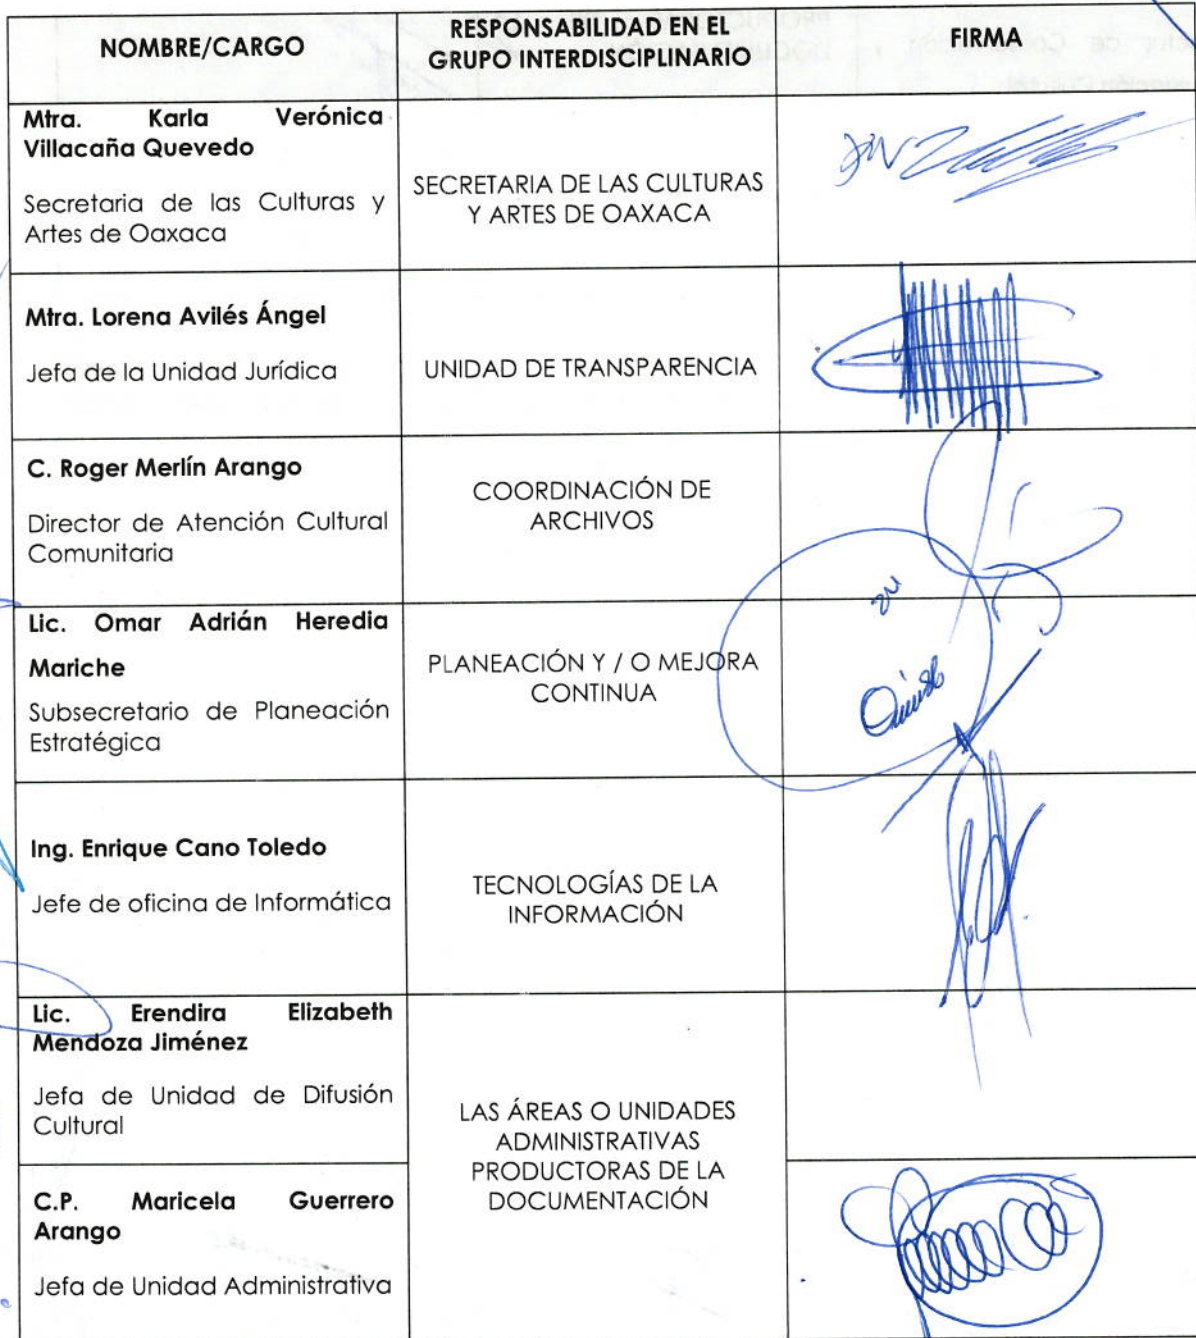 NOMBRE/CARGO
RESPONSABILIDAD EN EL
GRUPO INTERDISCIPLINARIO
FIRMA
Mtra. Karla Verónica
Villacaña Quevedo
Secretaria de las Culturas y
Artes de Oaxaca
SECRETARIA DE LAS CULTURAS
Y ARTES DE OAXACA
Mtra. Lorena Avilés Ángel
Jefa de la Unidad Jurídica
UNIDAD DE TRANSPARENCIA
C. Roger Merlín Arango
Director de Atención Cultural
Comunitaria
COORDINACIÓN DE
ARCHIVOS
Lic. Omar Adrián Heredia
Mariche
Subsecretario de Planeación
Estratégica
PLANEACIÓN Y / O MEJORA
CONTINUA
Ing. Enrique Cano Toledo
Jefe de oficina de Informática
TECNOLOGÍAS DE LA
INFORMACIÓN
Lic. Erendira Elizabeth
Mendoza Jiménez
Jefa de Unidad de Difusión
Cultural
LAS ÁREAS O UNIDADES
ADMINISTRATIVAS
PRODUCTORAS DE LA
DOCUMENTACIÓN
C.P. Maricela Guerrero
Arango
Jefa de Unidad Administrativa